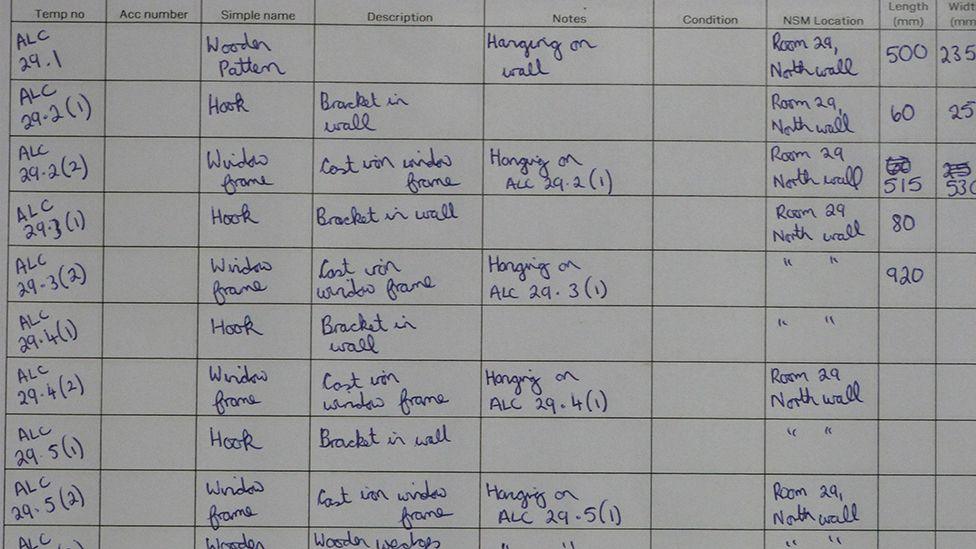 Temp no Acc number Simple name Description Notes Condition NSM Location Length (mm) Width (mm
ALC 29.1 Wooden Pattern Hanging on wall Room 29, North wall 500 235
ALC 29.2(1) Hook Bracket in wall Room 29, North wall 60 25
ALC 29.2(2) Window frame Cast iron window frame Hanging on ALC 29.2(1) Room 29 North wall 515 530
ALC 29.3(1) Hook Bracket in wall Room 29 North wall 80
ALC 29.3(2) Window frame Cast iron window frame Hanging on ALC 29.3(1) " " 920
ALC 29.4(1) Hook Bracket in wall " "
ALC 29.4(2) Window frame Cast iron window frame Hanging on ALC 29.4(1) Room 29 North wall
ALC 29.5(1) Hook Bracket in wall " "
ALC 29.5(2) Window frame Cast iron window frame Hanging on ALC 29.5(1) Room 29, North wall
ALC Wooden Wooden " " " "